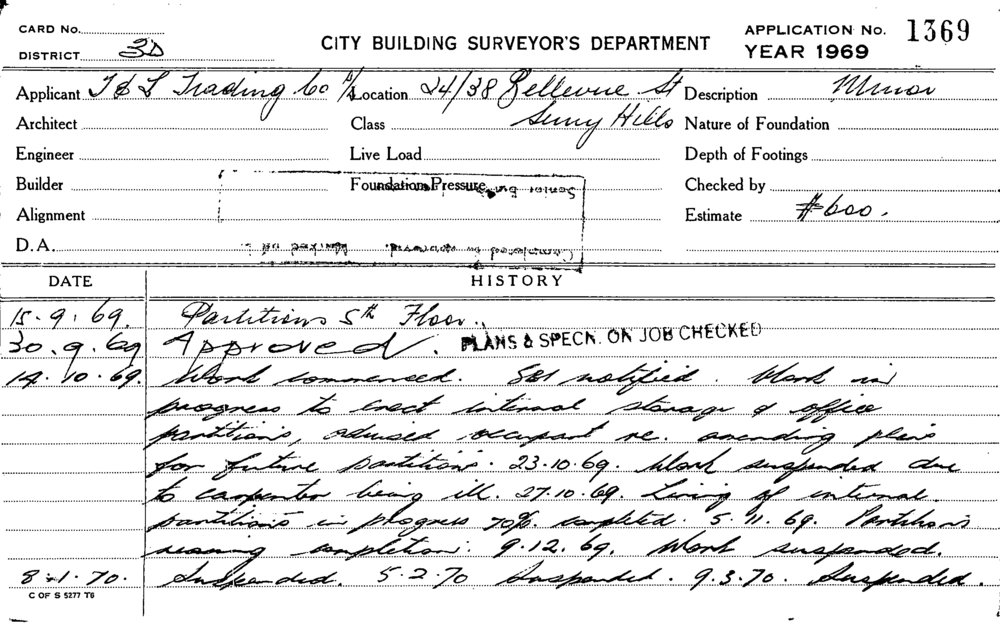 CARD No.
DISTRICT 3D
CITY BUILDING SURVEYOR'S DEPARTMENT
APPLICATION No. 1369
YEAR 1969
Applicant T & L Trading Co P/L Location 24/38 Bellevue St Description Minor
Architect Class Surry Hills Nature of Foundation
Engineer Live Load Depth of Footings
Builder Foundation Pressure Checked by
Senior
Alignment Estimate $600.
D.A. Completed as approved. Marked off
DATE HISTORY
15.9.69. Partitions 5th Floor.
30.9.69 Approved. PLANS & SPECN. ON JOB CHECKED
14.10.69. Work commenced. S81 notified. Work in
progress to erect internal storage & office
partitions, advised occupant re. amending plans
for future partitions. 23.10.69. Work suspended due
to carpenter being ill. 27.10.69. Lining of internal
partitions in progress 70% completed. 5.11.69. Partitions
nearing completion. 9.12.69. Work suspended.
8.1.70. Suspended. 5.2.70 Suspended. 9.3.70. Suspended.
C OF S 5277 T6